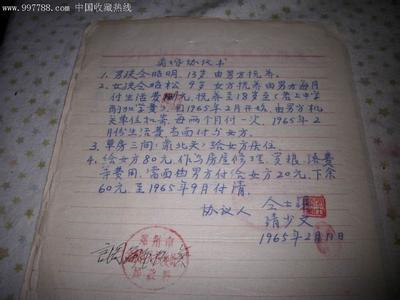 www.997788.com 中国收藏热线
离婚协议书
1. 男孩仝皓明，13岁由男方抚养。
2. 女孩仝皓松 9岁女方抚养由男方每月
付生活费 元，抚养至18岁至（若上中学
再加学费），自1965年2月开始，由男方机
关单位扣寄，每两个月付一次，1965年2
月份生活费当面付与女方。
3. 草房三间（最北头）给女方居住。
4. 给女方80元，作为房屋修理、买粮、路费
等费用。当面由男方付给女方20元，下余
60元，至1965年9月付清。
协议人 仝士
靖少文
1965年2月 日